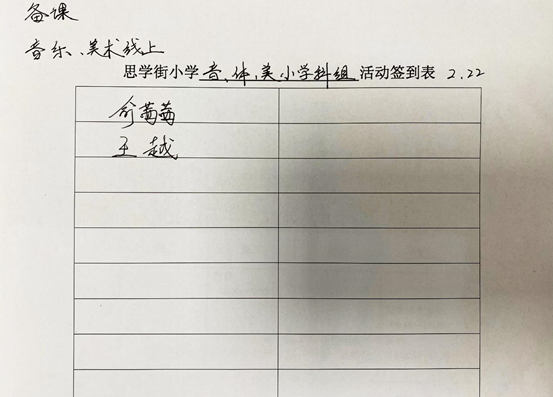 备课
音乐、美术线上
思学街小学 音、体、美小学科组 活动签到表 2.22
俞菊菊
王越